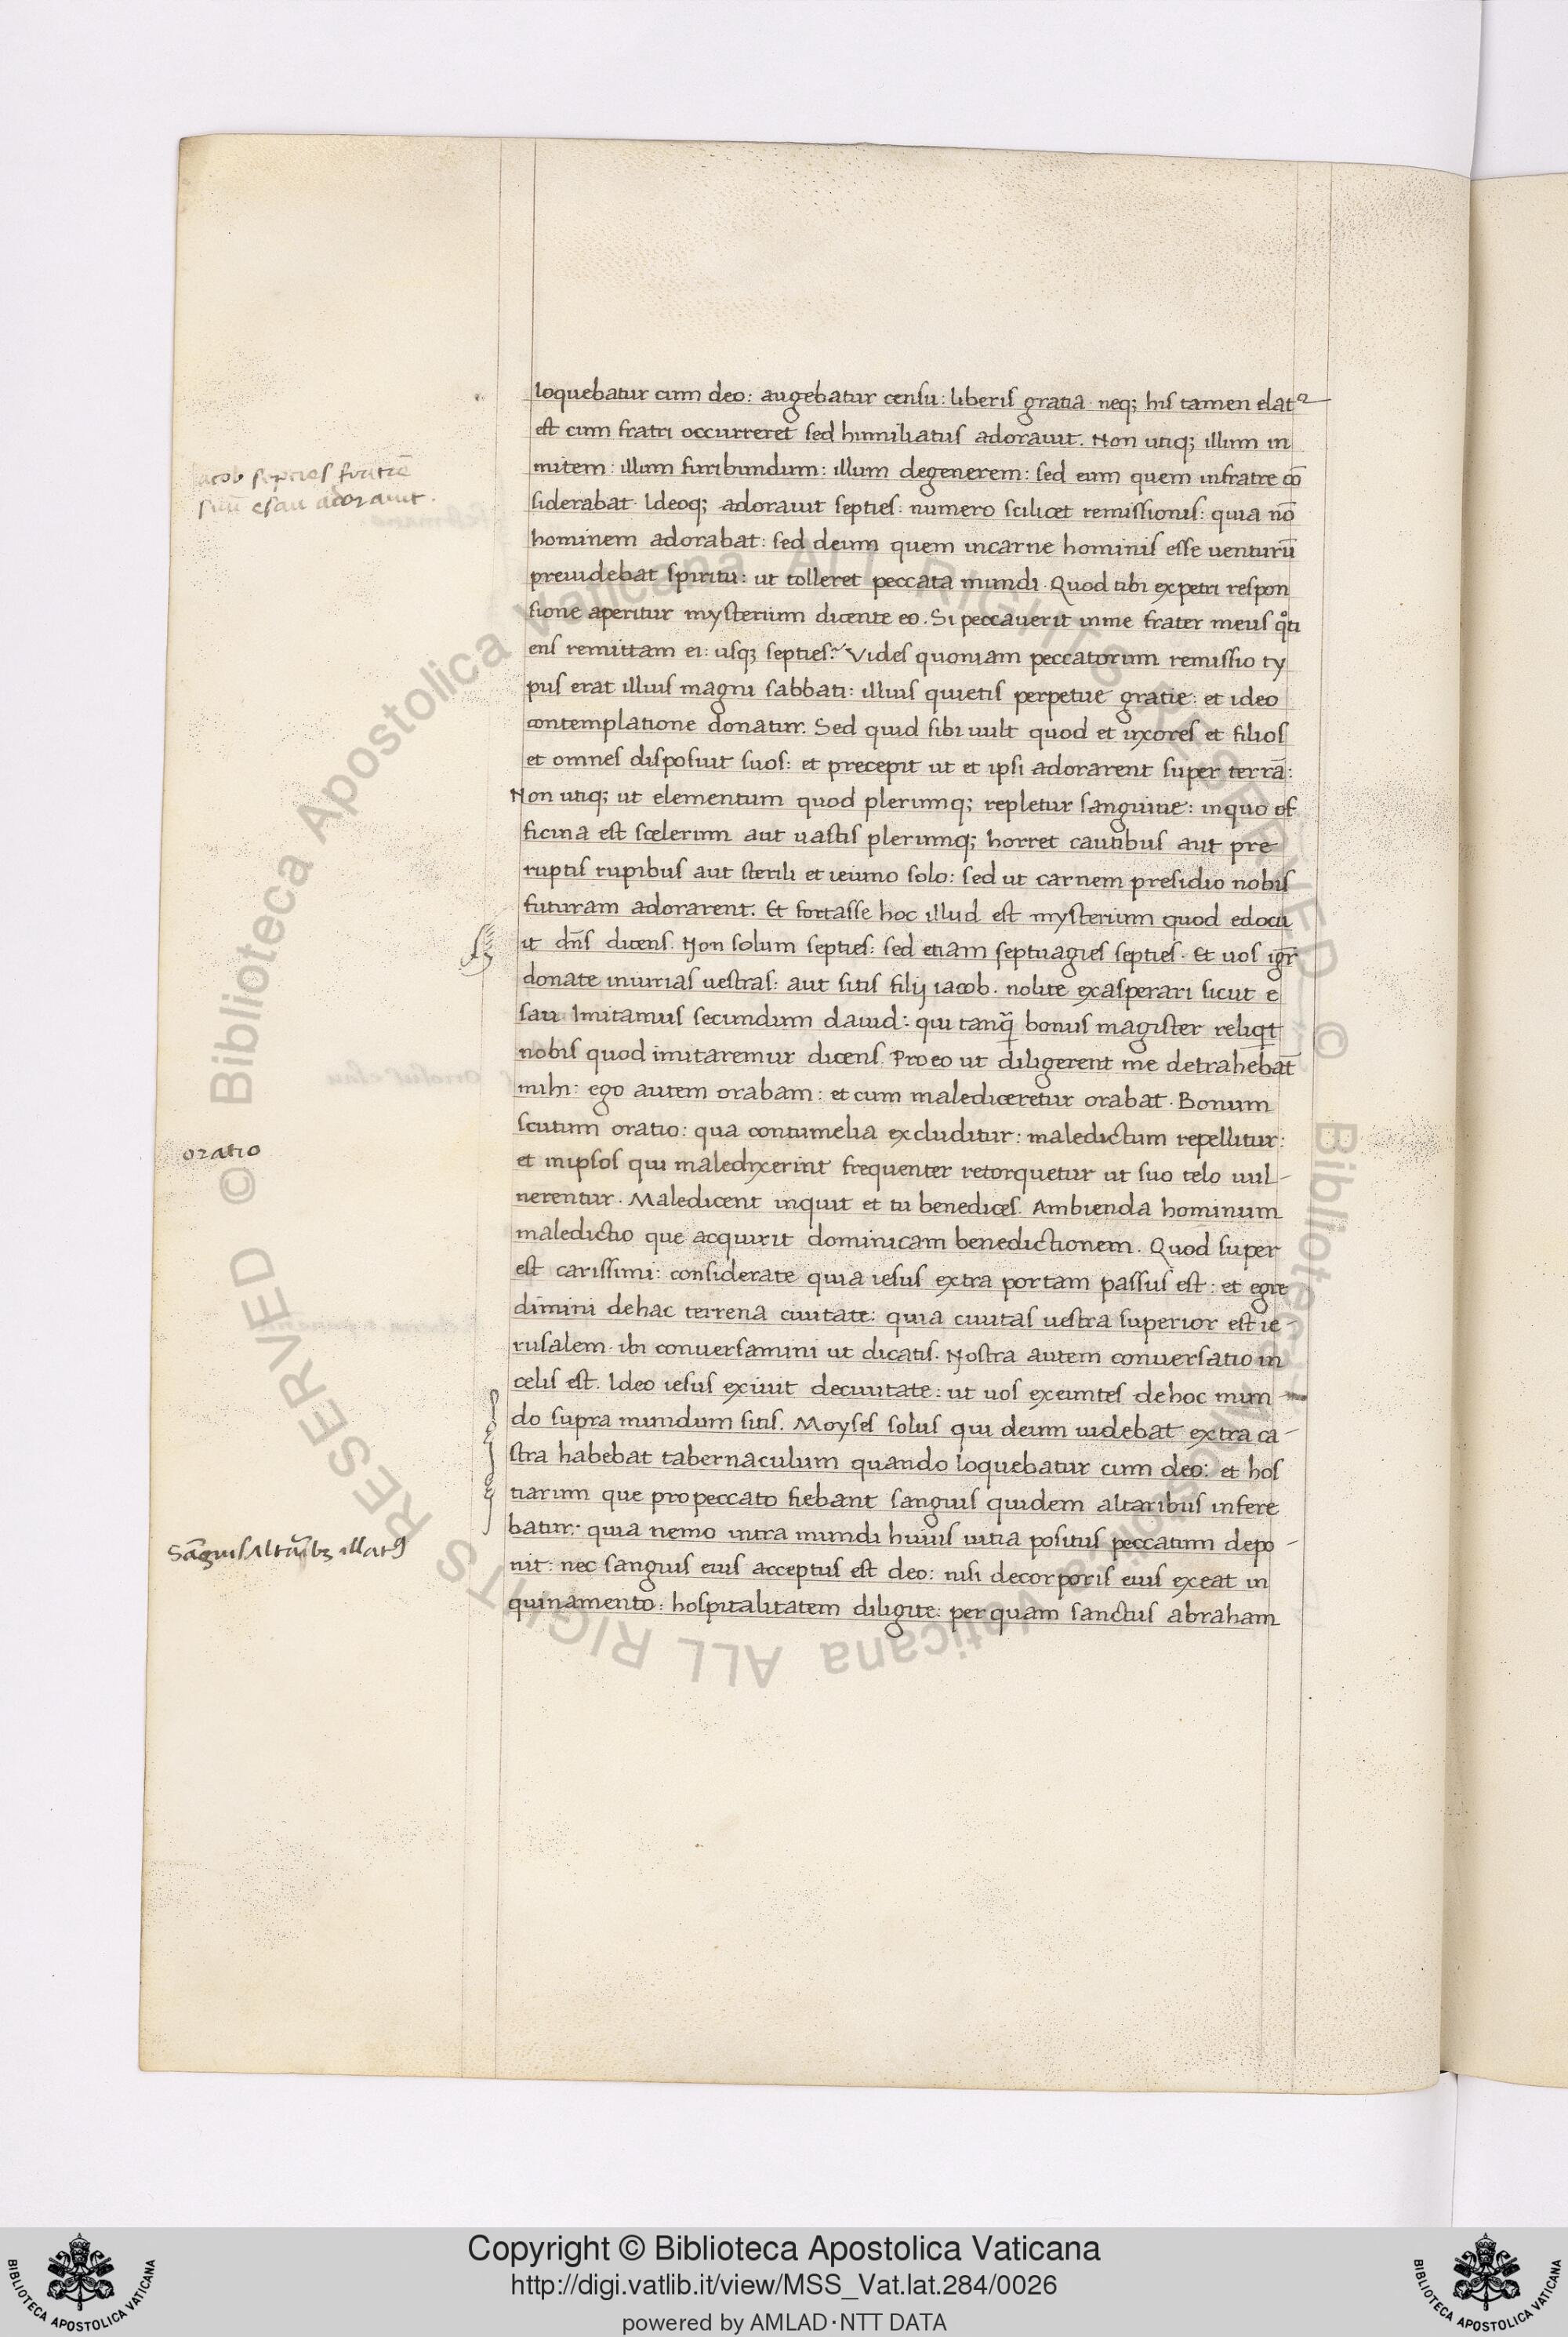 loquebatur cum deo: augebatur censu: liberis gratia. neq; his tamen elatꝰ
est cum fratri occurreret sed humiliatus adorauit. Non utiq; illum in
mitem: illum furibundum: illum degenerem: sed eum quem infratre cō
siderabat. Ideoq; adorauit septies: numero scilicet remissionis: quia nō
hominem adorabat: sed deum quem incarne hominis esse uenturū
preuidebat spiritu: ut tolleret peccata mundi. Quod tibi expetri respon
sione aperitur mysterium dicente eo. Si peccauerit inme frater meus qͦti
ens remittam ei: usq; septies? Vides quoniam peccatorum remissio ty
pus erat illius magni sabbati: illius quietis perpetue gratie: et ideo
contemplatione donatur. Sed quid sibi uult quod et uxores et filios
et omnes disposuit suos: et precepit ut et ipsi adorarent super terrā:
Non utiq; ut elementum quod plerumq; repletur sanguine: inquo of
ficina est scelerum aut uastis plerumq; horret cautibus aut pre
ruptis rupibus aut sterili et ieiuno solo: sed ut carnem presidio nobis
futuram adorarent. Et fortasse hoc illud est mysterium quod edocu
it dn̄s dicens. Non solum septies: sed etiam septuagies septies. Et uos igr̄
donate iniurias uestras: aut sitis filij iacob. nolite exasperari sicut e
sau Imitamus secundum dauid: qui tanq̄ bonus magister reliqt
nobis quod imitaremur dicens. Proeo ut diligerent me detrahebāt
mihi: ego autem orabam: et cum malediceretur orabat. Bonum
scutum oratio: qua contumelia excluditur: maledictum repellitur:
et inipsos qui maledixerint frequenter retorquetur ut suo telo uul-
nerentur. Maledicent inquit et tu benedices. Ambienda hominum
maledictio que acquirit dominicam benedictionem. Quod super
est carissimi: considerate quia iesus extra portam passus est: et egre
dimini dehac terrena ciuitate: quia ciuitas uestra superior est ie-
rusalem. ibi conuersamini ut dicatis. Nostra autem conuersatio in
celis est. Ideo iesus exiuit deciuitate: ut uos exeuntes dehoc mun
do supra mundum sitis. Moyses solus qui deum uidebat extra ca-
stra habebat tabernaculum quando loquebatur cum deo: et hos
tiarum que propeccato fiebant sanguis quidem altaribus infere
batur: quia nemo intra mundi huius uitia positus peccatum depo-
nit: nec sanguis eius acceptus est deo: nisi decorporis eius exeat in
quinamento: hospitalitatem diligite: per quam sanctus abraham
iacob septies fratrē
suū esau adorauit.
oratio
Sāguis Altāibꝫ illatꝰ
© Biblioteca Apostolica Vaticana ALL RIGHTS RESERVED © Biblioteca Apostolica Vaticana ALL RIGHTS RESERVED
Copyright © Biblioteca Apostolica Vaticana
http://digi.vatlib.it/view/MSS_Vat.lat.284/0026
powered by AMLAD·NTT DATA
BIBLIOTECA APOSTOLICA VATICANA
BIBLIOTECA APOSTOLICA VATICANA